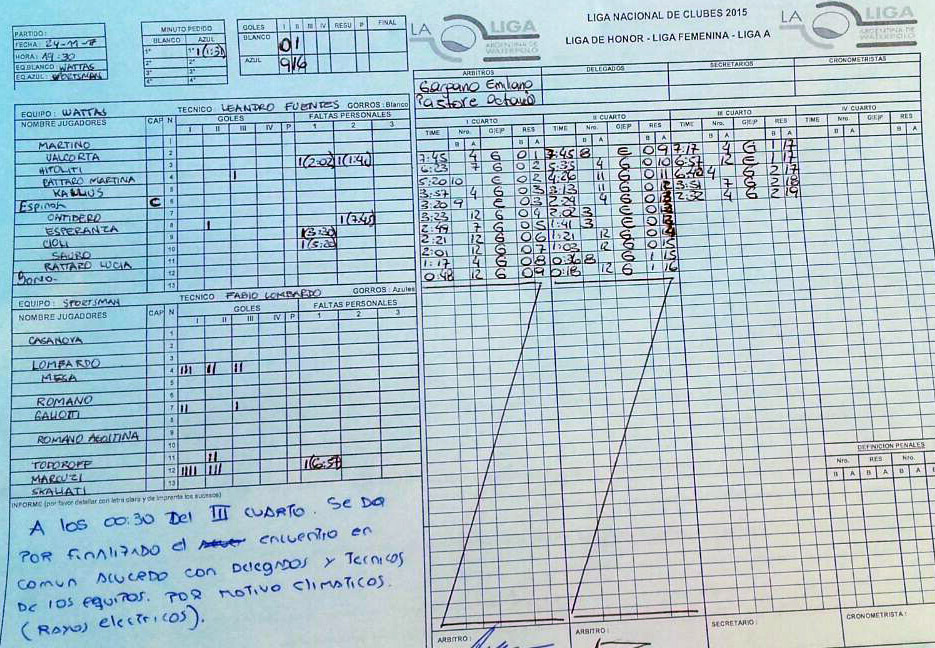 LA LIGA ARGENTINA DE WATERPOLO
LIGA NACIONAL DE CLUBES 2015
LIGA DE HONOR - LIGA FEMENINA - LIGA A
LA LIGA ARGENTINA DE WATERPOLO
PARTIDO:
FECHA: 24-11-
HORA: 19:30
EQ.BLANCO: WATTAS
EQ.AZUL: SPORTSMAN
MINUTO PEDIDO
BLANCO AZUL
1° 1°
2° 2°
3° 3°
4° 4°
GOLES I II III IV RESU P FINAL
BLANCO 0 1
AZUL 9 6
ARBITROS DELEGADOS SECRETARIOS CRONOMETRISTAS
Gargano Emiliano
Pastore Octavio
EQUIPO: WATTAS TECNICO LEANDRO FUENTES GORROS: Blanco
NOMBRE JUGADORES CAP N GOLES FALTAS PERSONALES
I II III IV P 1 2 3
MARTINO
VALCORTA
RATTARO MARTINA
KALLIUS
Espinoh C
ONTIDERO
ESPERANZA
CIOLI
SAURO
RATTARO LUCIA
Bono.
EQUIPO: SPORTSMAN TECNICO FABIO LOMBARDO GORROS: Azules
NOMBRE JUGADORES CAP N GOLES FALTAS PERSONALES
I II III IV P 1 2 3
CASANOVA
LOMBARDO
MESA
ROMANO
GALIOTTI
ROMANO AGOSTINA
TODOROFF
MARCUZI
SKALIATI
I CUARTO II CUARTO III CUARTO IV CUARTO
TIME Nro. G|E|P RES TIME Nro. G|E|P RES TIME Nro. G|E|P RES TIME Nro. G|E|P RES
B A B A B A B A B A B A B A B A
7:45 4 G 0 1 7:45 8 E 0 9 7:17 4 G 1 17
6:23 7 G 0 2 5:35 4 G 0 10 6:57 12 E 1 17
5:20 10 E 0 2 4:26 11 G 0 11 6:40 4 G 2 17
3:57 4 G 0 3 3:13 11 G 0 12 3:51 7 G 2 18
3:20 9 E 0 3 2:29 4 G 0 13 2:32 4 G 2 19
3:23 12 G 0 4 2:02 3 E 0 13
2:49 7 G 0 5 1:41 3 E 0 13
2:21 12 G 0 6 1:21 12 G 0 14
2:01 12 G 0 7 1:03 12 G 0 15
1:17 4 G 0 8 0:36 8 G 1 15
0:48 12 G 0 9 0:18 12 G 1 16
DEFINICION PENALES
Nro. RES Nro.
B A B A B A
INFORME (por favor detallar con letra clara y de imprenta los sucesos)
A los 00:30 Del III CUARTO. Se DA
POR FINALIZADO el encuentro en
comun Acuerdo con Delegados y Tecnicos
De los equipos. POR MOTIVO CLIMATICOS.
(Rayos electricos).
ARBITRO: ARBITRO: SECRETARIO: CRONOMETRISTA: